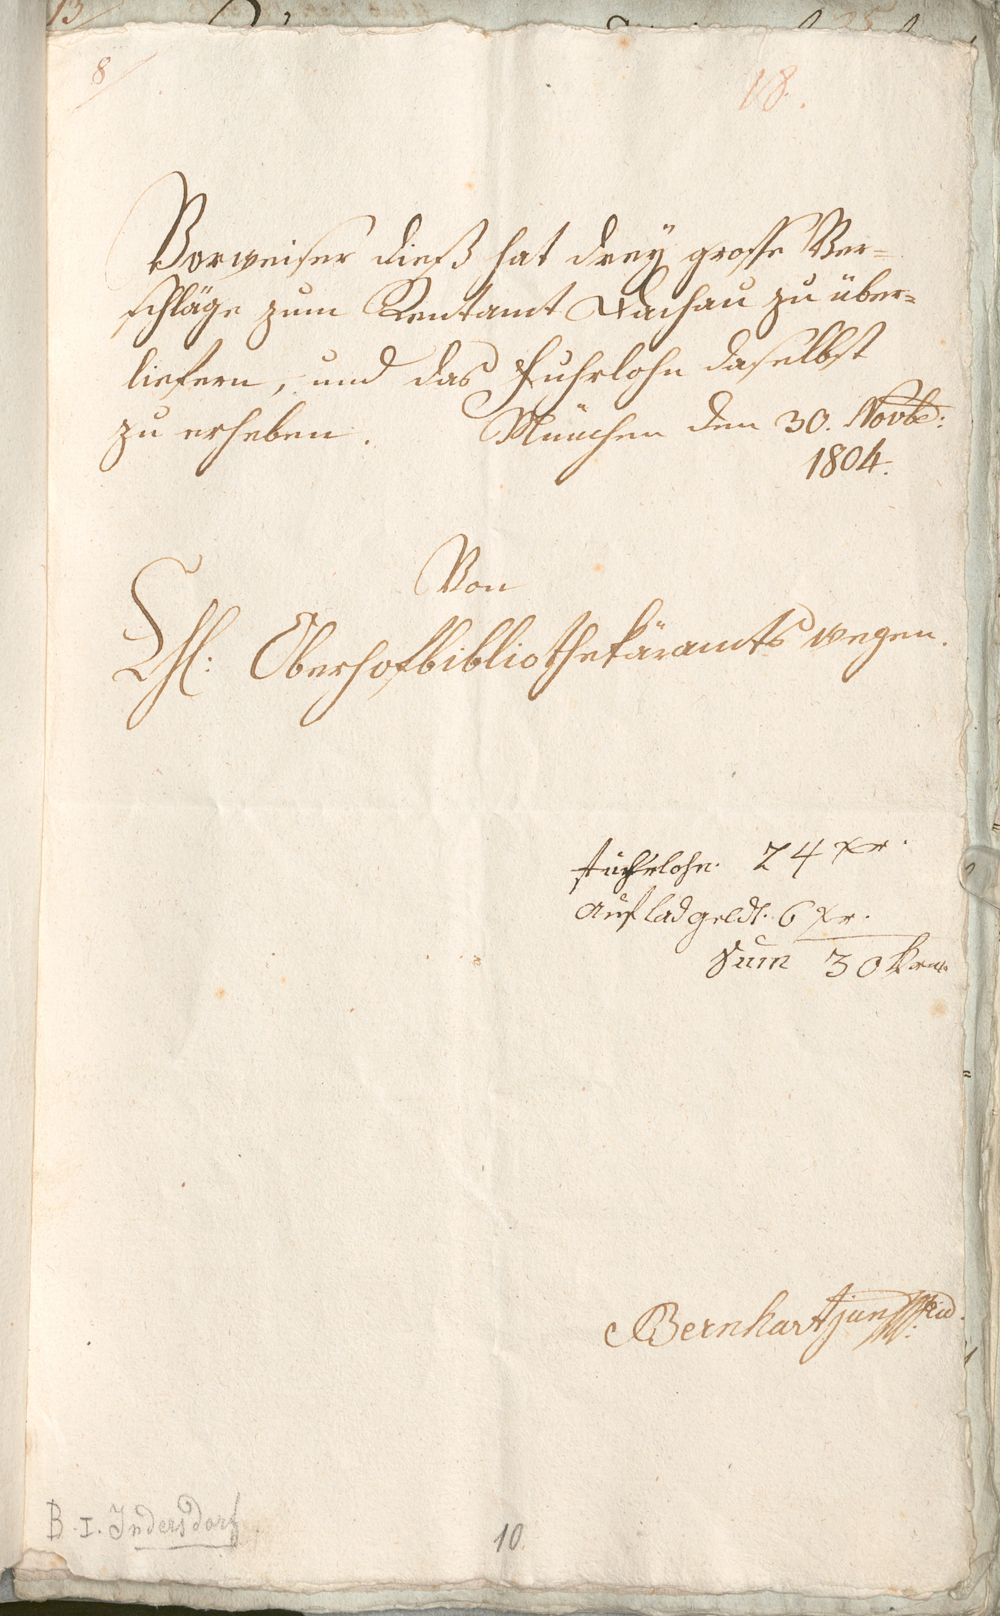 13
8
18.
Vorweiser dieß hat drey grosse Ver=
schläge zum Rentamt Dachau zu über=
liefern, und das Fuhrlohn daselbst
zu erheben. München den 30. Novbr:
1804.
Von
Chl: Oberhofbibliothekäramts wegen.
24 xr.
aufladgeldt. 6 xr.
Sum 30
Bernhart
B. I. Indersdorf
10